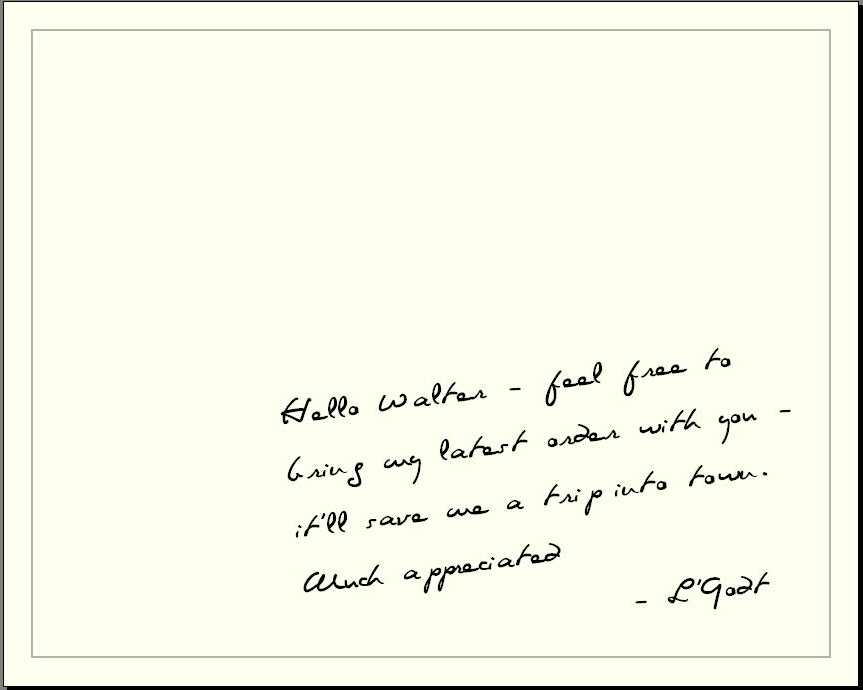 Hello Walter - feel free to
bring my latest order with you -
it'll save me a trip into town.
Much appreciated
- L'Godt